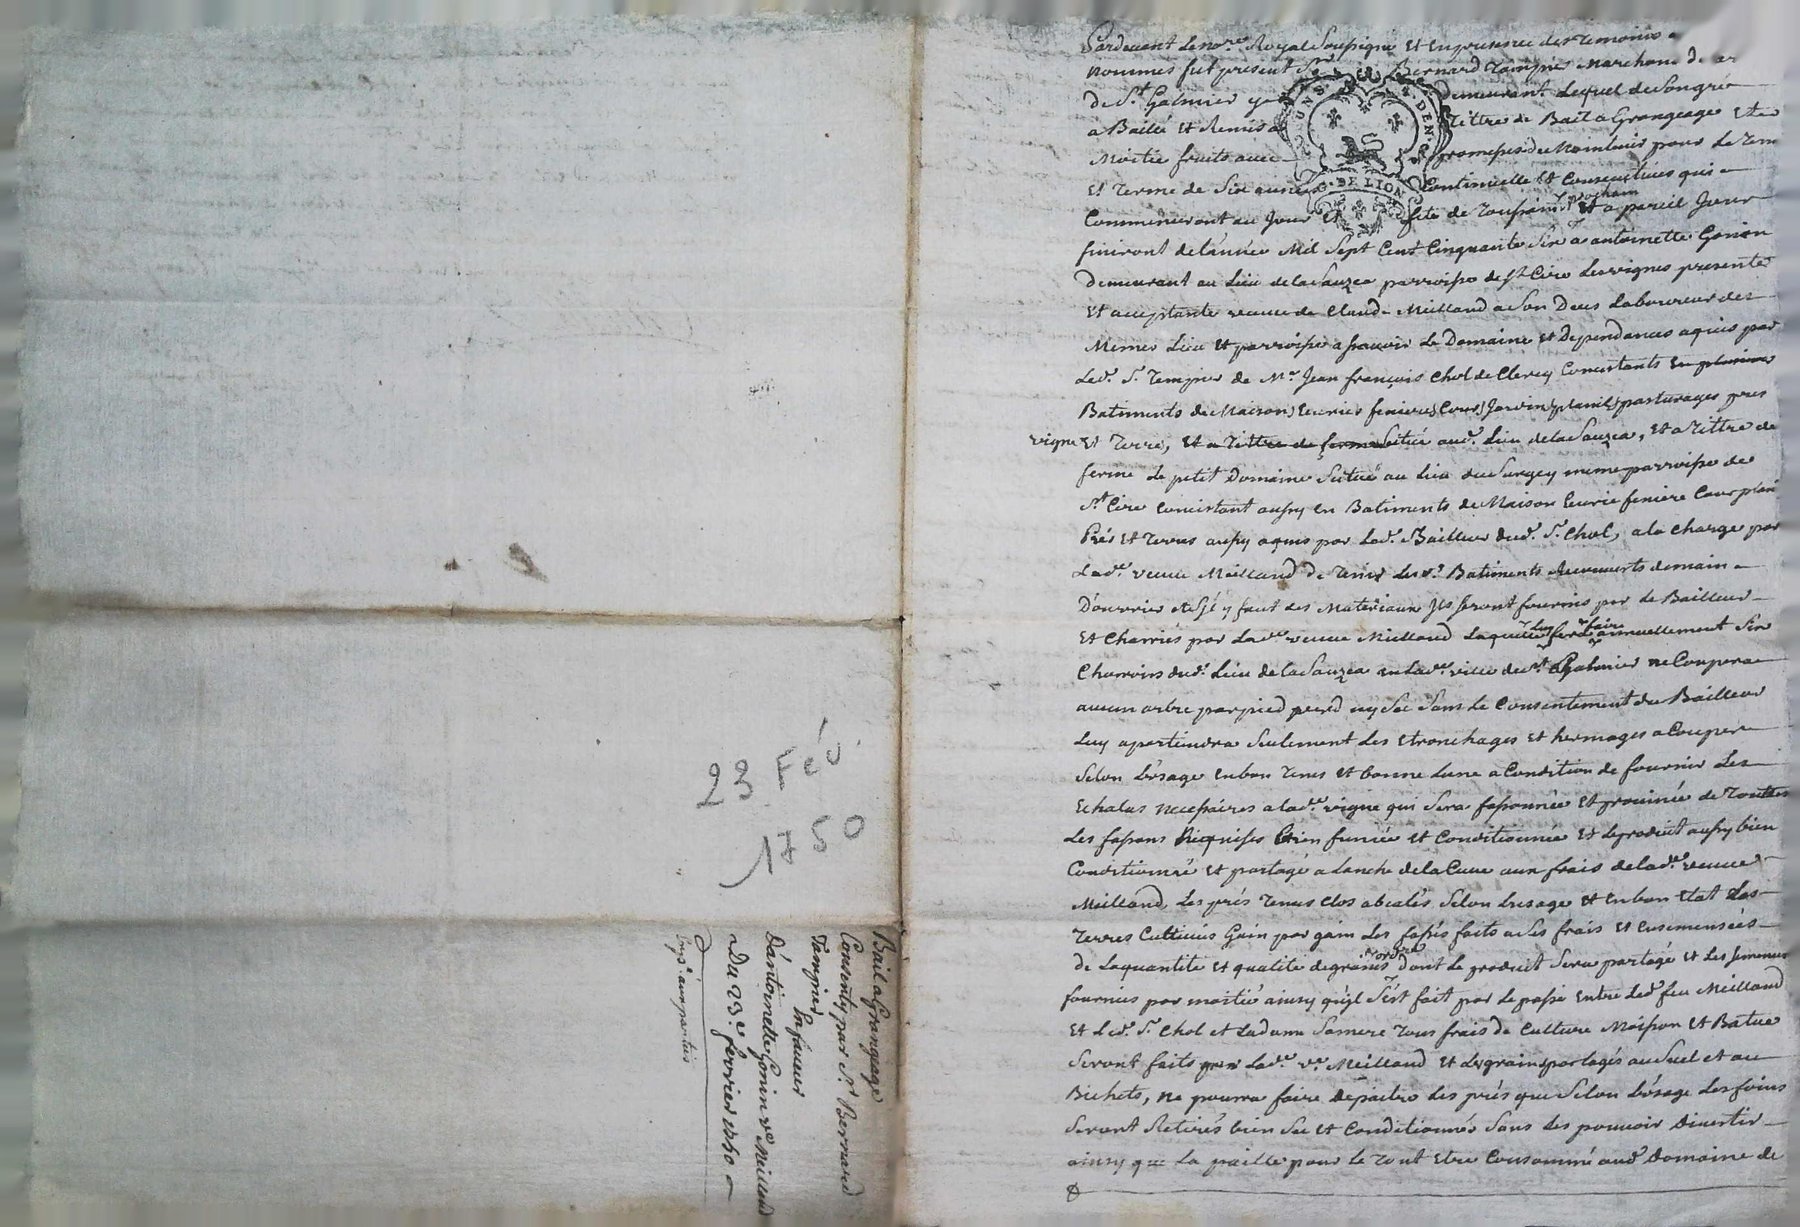 23 Fév.
1750
Bail a Grangeage
Consenty par Sr. Bernard
Tampier
En faveur
D'antoinette Gonin ve Meilland
Du 23e fevrier 1750
Pardevant Le nore. Royal Soussigné Et En presence des temoins
nommés fut present Sr Bernard Tampier Marchand de
De St. Galmier y Demeurant Lequel de Son gré
a Baillé Et Remis a tittre de Bail a Grangeage Et a
Moitié fruits avec promesse de Maintenir pour Le tem
Et terme de Six années Continuelle Et Consecutives qui
Commenceront au Jour Et fete de toussaint prochain Et a pareil Jour
finiront de l'année Mil Sept Cent Cinquante Six a antoinette Gonin
Demeurant au Lieu de la Sauzea parroisse de St Cire Les vignes presente
Et acceptante veuve de Claude Meilland a Son Deces Laboureur des
Memes Lieu Et parroisse a Scavoir Le Domaine Et Dependances aquis par
Led. Sr. Tempier de Mr. Jean françois Chol de Clercy Concistants En plusieurs
Batiments de Maison Ecuries feniere Cour Jardin plain pasturages pres
vigne Et Terre, Et a tittre de ferme Scitué aud. Lieu de la Sauzea, Et a tittre de
ferme Le petit Domaine Scitué au Lieu du Surgey meme parroisse de
St. Cire Concistant aussy En Batiments de Maison Ecurie feniere Cour plain
Prés Et terres aussy aquis par Led. Bailleur dud. Sr. Chol, a la Charge par
Lade. veuve Meilland de tenir Lesd. Batiments Recouverts de main
D'ouvrier Et S'il y faut des Materiaux Ils Seront fournis par le Bailleur
Et Charriés par Lade veuve Meilland Laquelle Luy fera faire annuellement Six
Charrois dud. Lieu de la Sauzea en Lade. ville de St Galmier ne Coupera
aucun arbre par pied verd ny Sec Sans Le Consentement du Bailleur
Luy apartiendra Seulement Les Etronchages Et hermages a Couper
Selon L'usage en bon tems Et bonne Lune a Condition de fournir Les
Echalas necessaires a lade. vigne qui Sera fassonnée Et provinée de Toutes
Les fassons Requises Bien fumée Et Conditionnée Et Le produit aussy bien
Conditionné Et partagé a Lanche de la Cuve aux frais de lade. veuve
Meilland, Les prés tenus Clos abealés Selon L'usage Et En bon Etat Les
Terres Cultivés Gain par gain Les fossés faits a Ses frais Et Ensemensées
de La quantité Et qualité de grains ordre dont Le produit Sera partagé Et Les Semences
fournies par moitié ainsy qu'il S'est fait par Le passé Entre Led. feu Meilland
Et Led. Sr. Chol et La dame Sa mere Tous frais de Culture Moisson Et Batue
Seront faits par Lade. ve. Meilland Et Les grains partagés au Suel et au
Bichets, ne pourra faire depaitre Les prés que Selon L'usage Les foins
Seront Retirés bien Sec Et Conditionnés Sans Les pouvoir Divertir
ainsy que La paille pour Le tout Etre Consommé aud. Domaine de